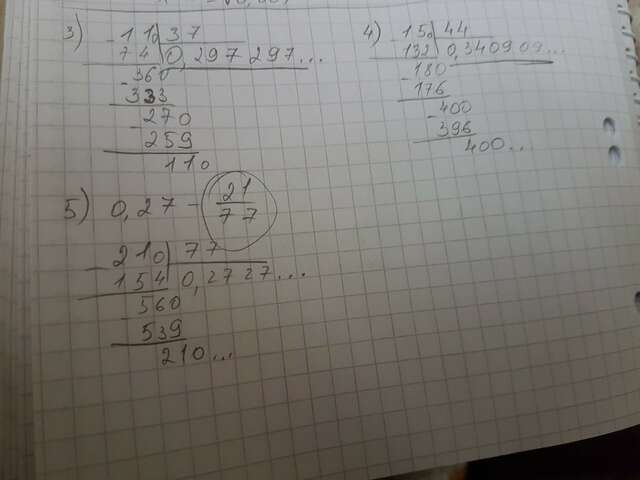 3) - 110 | 37
74 | 0,297 297...
- 360
333
- 270
259
110
4) 150 | 44
132 | 0,340909...
- 180
176
- 400
396
400..
5) 0,27 - 21/77
- 210 | 77
154 | 0,2727...
560
539
210...